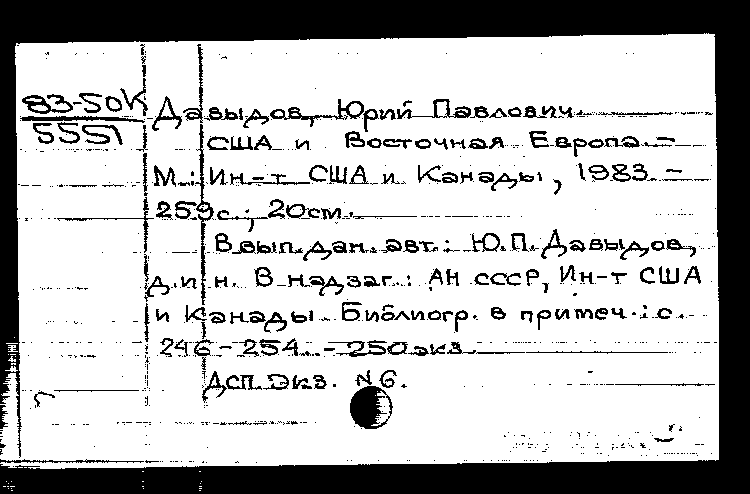 83-50К
5551
Давыдов, Юрий Павлович.
США и Восточная Европа. –
М.: Ин-т США и Канады, 1983. –
259с.; 20см.
В вып. дан. авт.: Ю.П. Давыдов,
д.и.н. В надзаг.: АН СССР, Ин-т США
и Канады. Библиогр. в примеч.: с.
246 – 254. – 250экз.
ДСП. Экз. N 6.